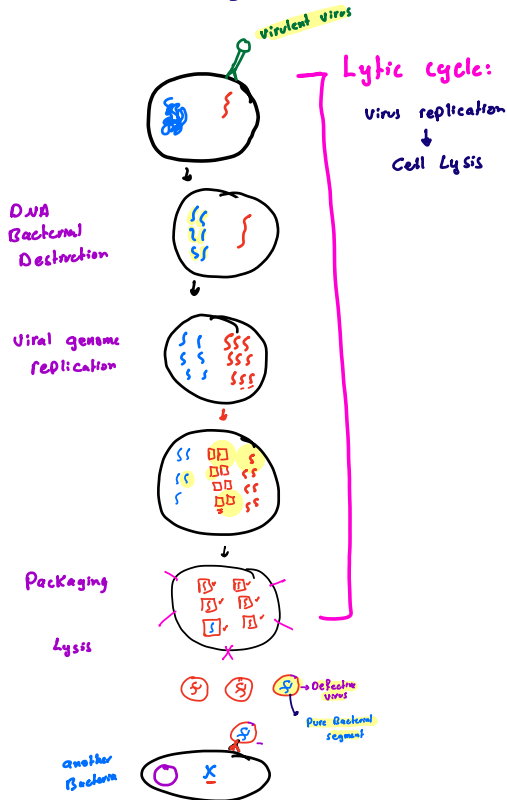 virulent virus
Lytic cycle:
virus replication
Cell Lysis
DNA
Bacterial
Destruction
Viral genome
replication
Packaging
Lysis
Defective
virus
Pure Bacterial
segment
another
Bacteria